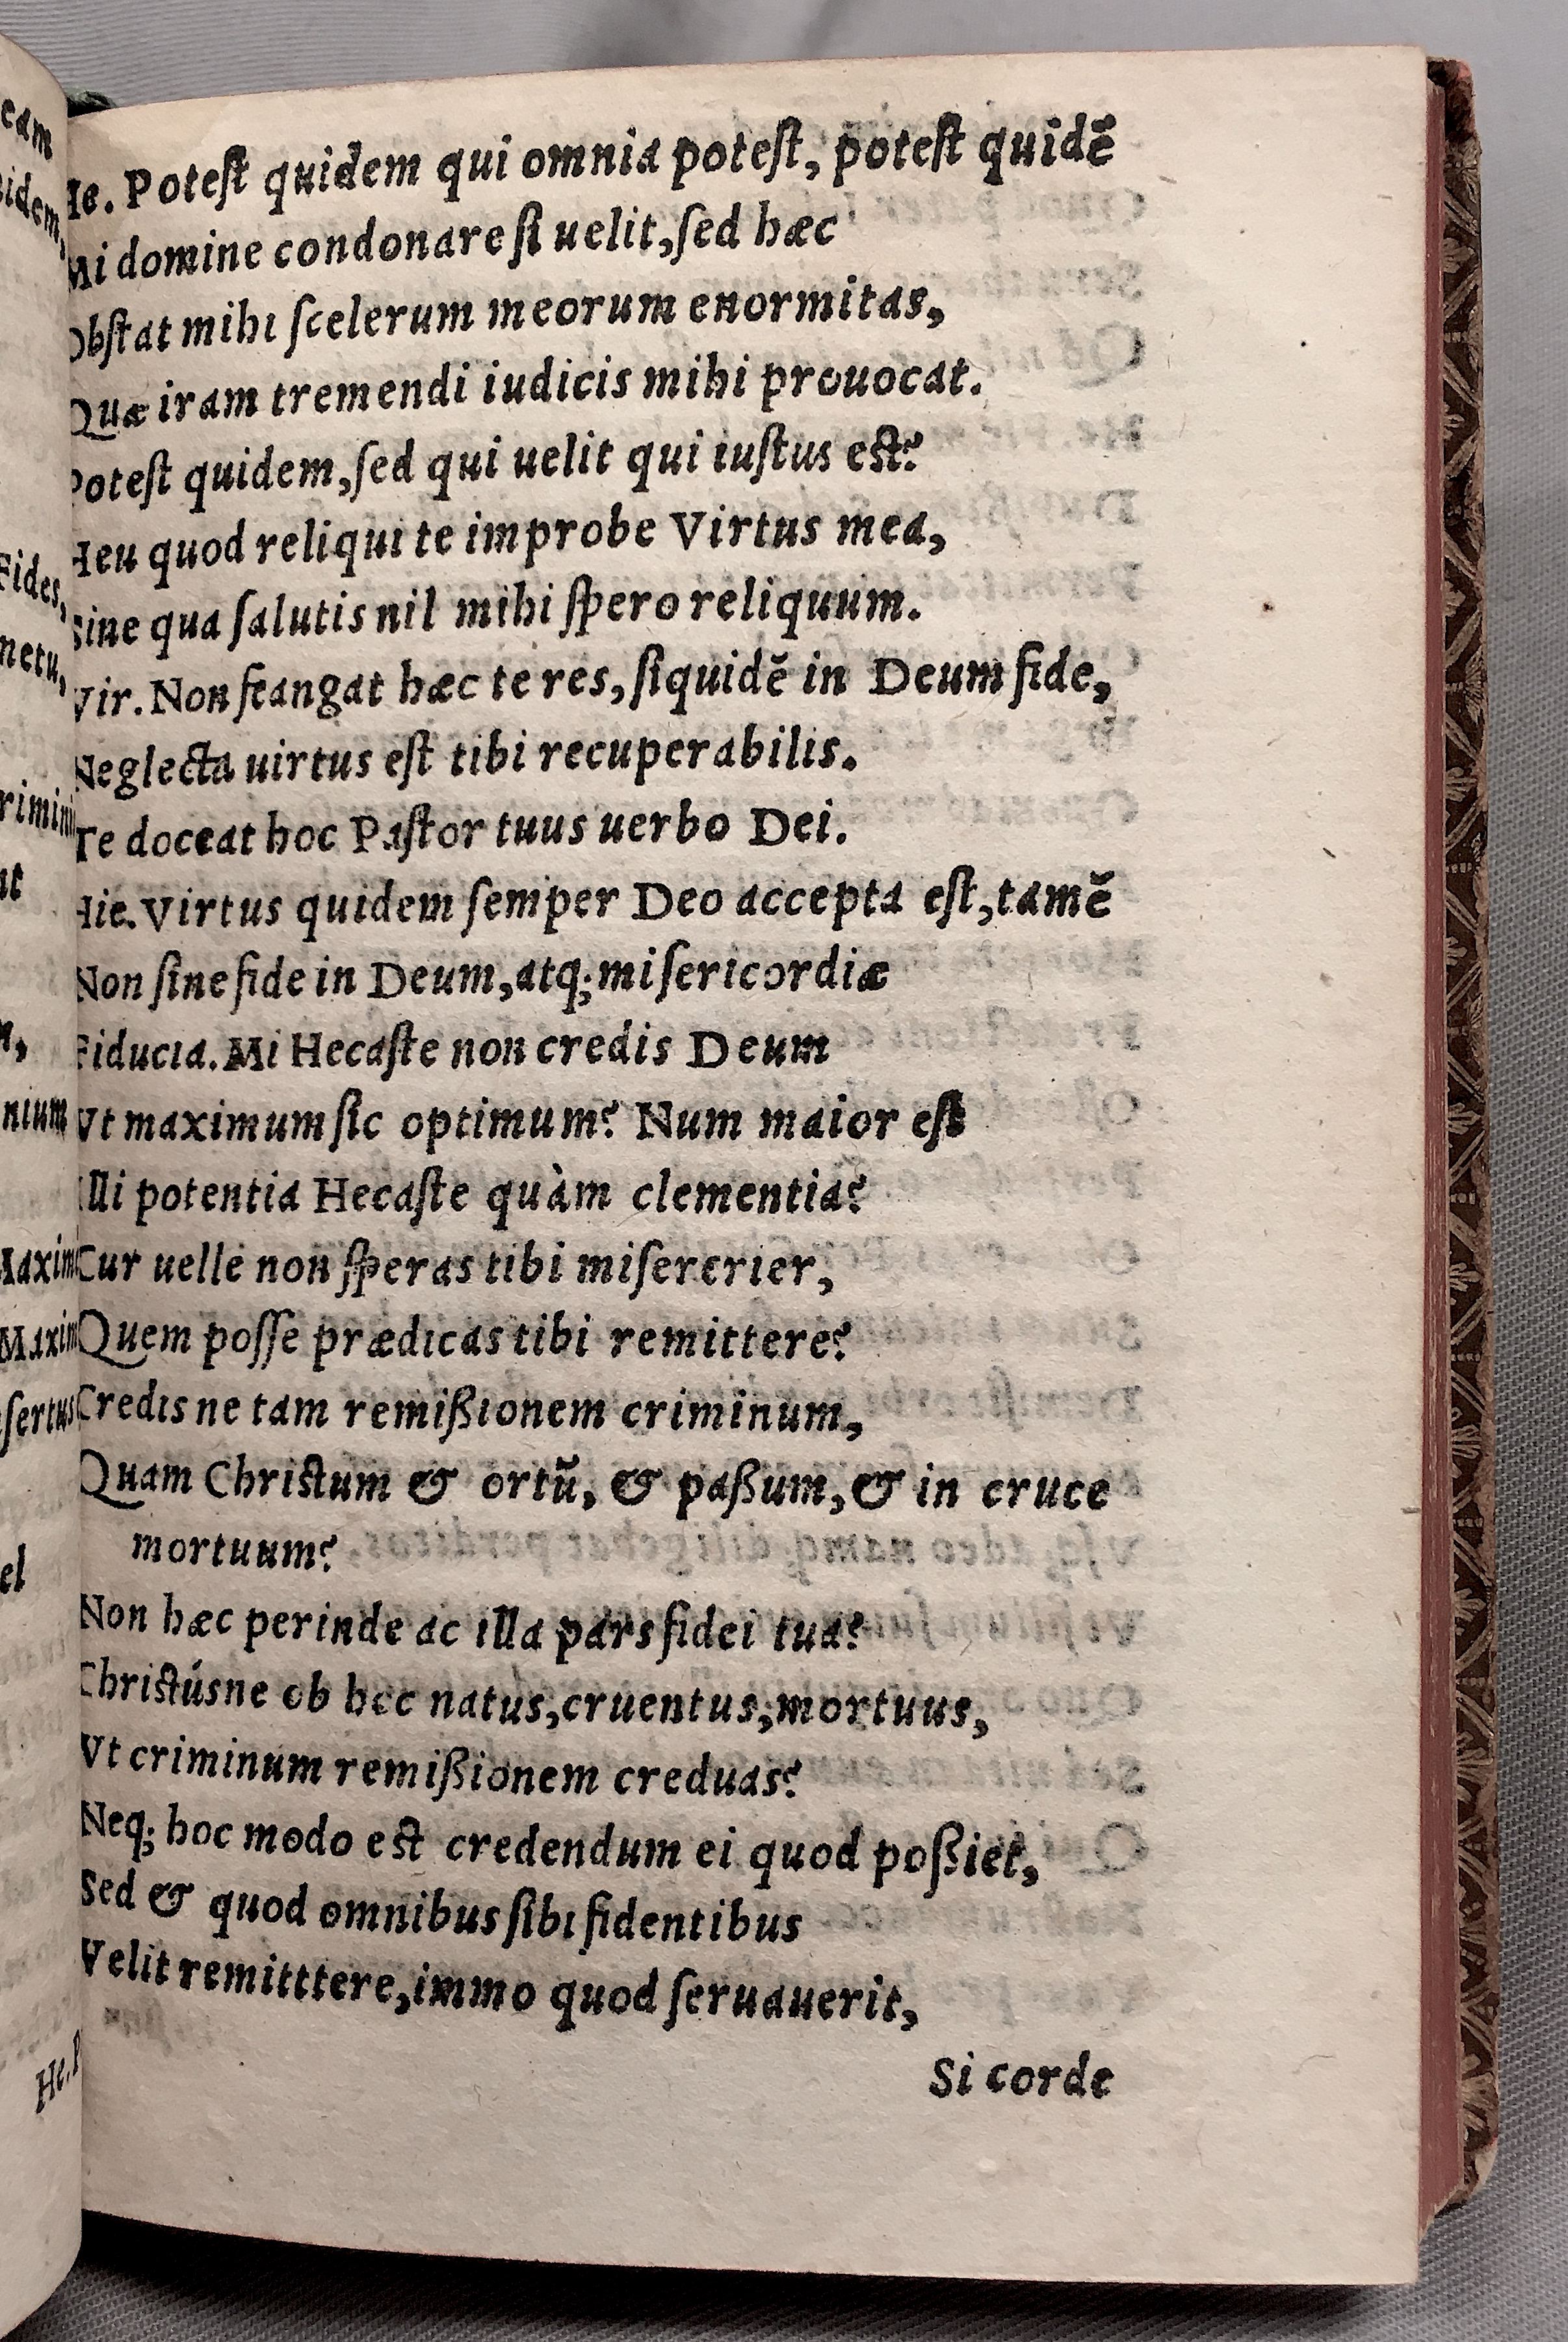 He. Potest quidem qui omnia potest, potest quidẽ
Mi domine condonare si uelit, sed hæc
Obstat mihi scelerum meorum enormitas,
Quæ iram tremendi iudicis mihi prouocat.
Potest quidem, sed qui uelit qui iustus est?
Heu quod reliqui te improbe Virtus mea,
Sine qua salutis nil mihi spero reliquum.
Vir. Non feangat hæc te res, siquidẽ in Deum fide,
Neglecta uirtus est tibi recuperabilis.
Te doceat hoc Pastor tuus uerbo Dei.
Hie. Virtus quidem semper Deo accepta est, tamẽ
Non sine fide in Deum, atq; misericordiæ
Fiducia. Mi Hecaste non credis Deum
Vt maximum sic optimum? Num maior est
Illi potentia Hecaste quàm clementia?
Cur uelle non speras tibi misererier,
Quem posse prædicas tibi remittere?
Credis ne tam remißionem criminum,
Quam Christum & ortũ, & paßum, & in cruce
mortuum?
Non hæc perinde ac illa pars fidei tua?
Christúsne ob hoc natus, cruentus, mortuus,
Vt criminum remißionem creduas?
Neq; hoc modo est credendum ei quod poßiet,
Sed & quod omnibus sibi fidentibus
Velit remitttere, immo quod seruauerit,
Si corde